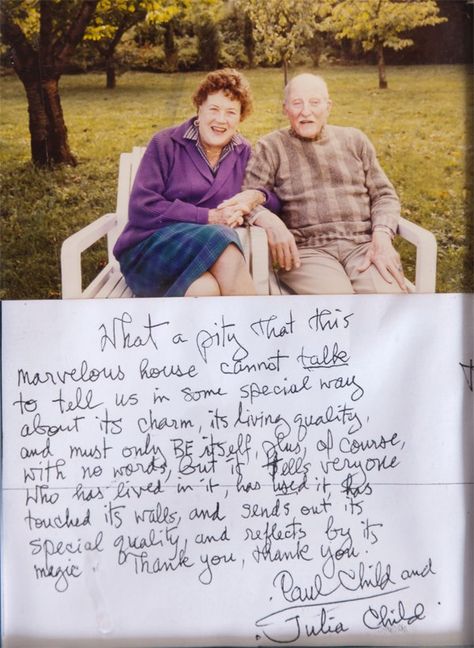 What a pity that this
marvelous house cannot talk
to tell us in some special way
about its charm, its living quality,
and must only BE itself, plus, of course,
with no words, but it tells everyone
who has lived in it, has used it, has
touched its walls, and sends out its
special quality, and reflects by its
magic. Thank you, thank you.
Paul Child and
Julia Child.